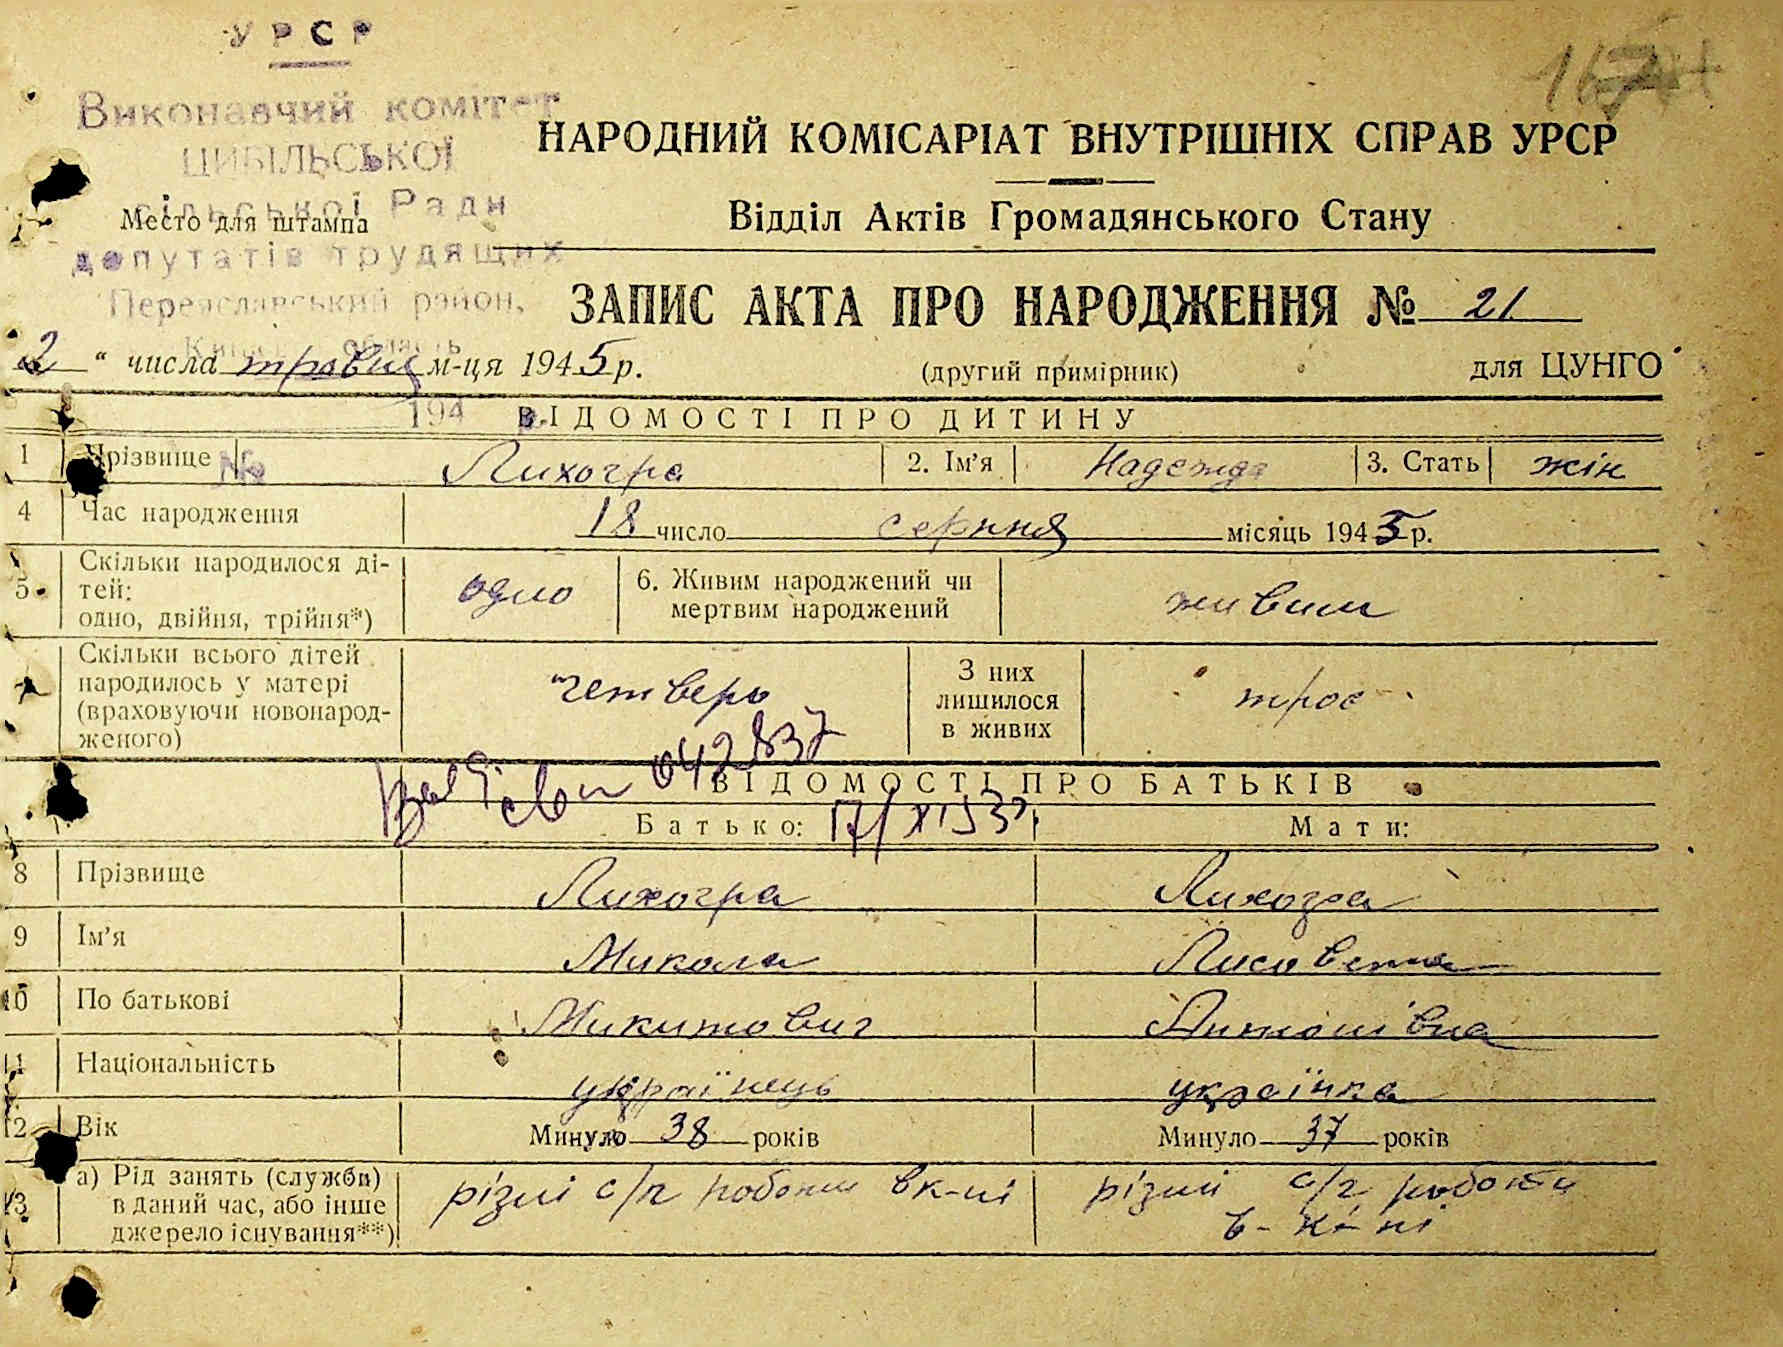 УРСР
Виконавчий комітет
ЦИБІЛЬСЬКОЇ
сільської Ради
депутатів трудящих
Переяславський район,
Київськ область
194 р.
№
Место для штампа
НАРОДНИЙ КОМІСАРІАТ ВНУТРІШНІХ СПРАВ УРСР
Відділ Актів Громадянського Стану
ЗАПИС АКТА ПРО НАРОДЖЕННЯ № 21
2 " числа травня м-ця 1945 р. (другий примірник) для ЦУНГО
ВІДОМОСТІ ПРО ДИТИНУ
1 Прізвище Лихогра 2. Ім'я Надежда 3. Стать жін
4 Час народження 18 число серпня місяць 1943 р.
5 Скільки народилося ді-
тей:
одно, двійня, трійня*) одно 6. Живим народжений чи
мертвим народжений живим
Скільки всього дітей
народилось у матері
(враховуючи новонарод-
женого) четверо З них
лишилося
в живих троє
042837
17/XI 53р.
ВІДОМОСТІ ПРО БАТЬКІВ
Батько: Мати:
8 Прізвище Лихогра Лихогра
9 Ім'я Микола Лисовета
10 По батькові Микитович Антонівна
11 Національність українець українка
12 Вік Минуло 38 років Минуло 37 років
13 а) Рід занять (служби)
в даний час, або інше
джерело існування**) різні с/г роботи в к-пі різні с/г роботи
в к-пі